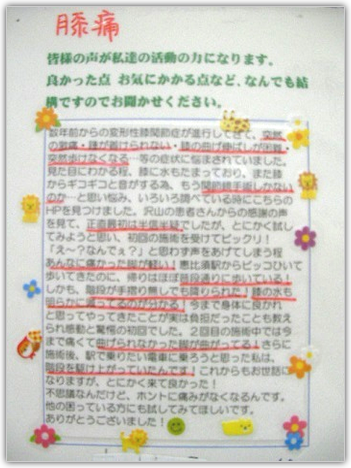 膝痛
皆様の声が私達の活動の力になります。
良かった点 お気にかかる点など、なんでも結
構ですのでお聞かせください。
数年前からの変形性膝関節症が進行してきて、突然
の激痛・踵が着けられない・膝の曲げ伸ばしが困難・
突然歩けなくなる…等の症状に悩まされていました。
見た目にわかる程、膝に水もたまっており、また膝
からギコギコと音がする為、もう関節鏡手術しかない
のか…と思い悩み、いろいろ調べている時にこちらの
HPを見つけました。沢山の患者さんからの感謝の声
を見て、正直最初は半信半疑でしたが、とにかく試し
てみようと思い、初回の施術を受けてビックリ！
「え～？なんでぇ？」と思わず声をあげてしまう程
あんなに痛かった脚が軽い！恵比須駅からビッコひいて
歩いてきたのに、帰りはほぼ普通りに歩いている！
しかも、階段が手摺り無しでも降りられた！膝の水も
明らかに減ってるのが分かる！今まで身体に良かれ
と思ってやってきたことが実は負担だったことも教え
られ感動と驚愕の初回でした。２回目の施術中では今
まで痛くて曲げられなかった脚が曲がってる！さらに
施術後、駅で乗りたい電車に乗ろうと思った私は、
階段を駆け上がっていたんです！これからもお世話に
なりますが、とにかく来て良かった！
不思議なんだけど、ホントに痛みがなくなるんです。
他の困っている方にも試してみてほしいです。
ありがとうございました！